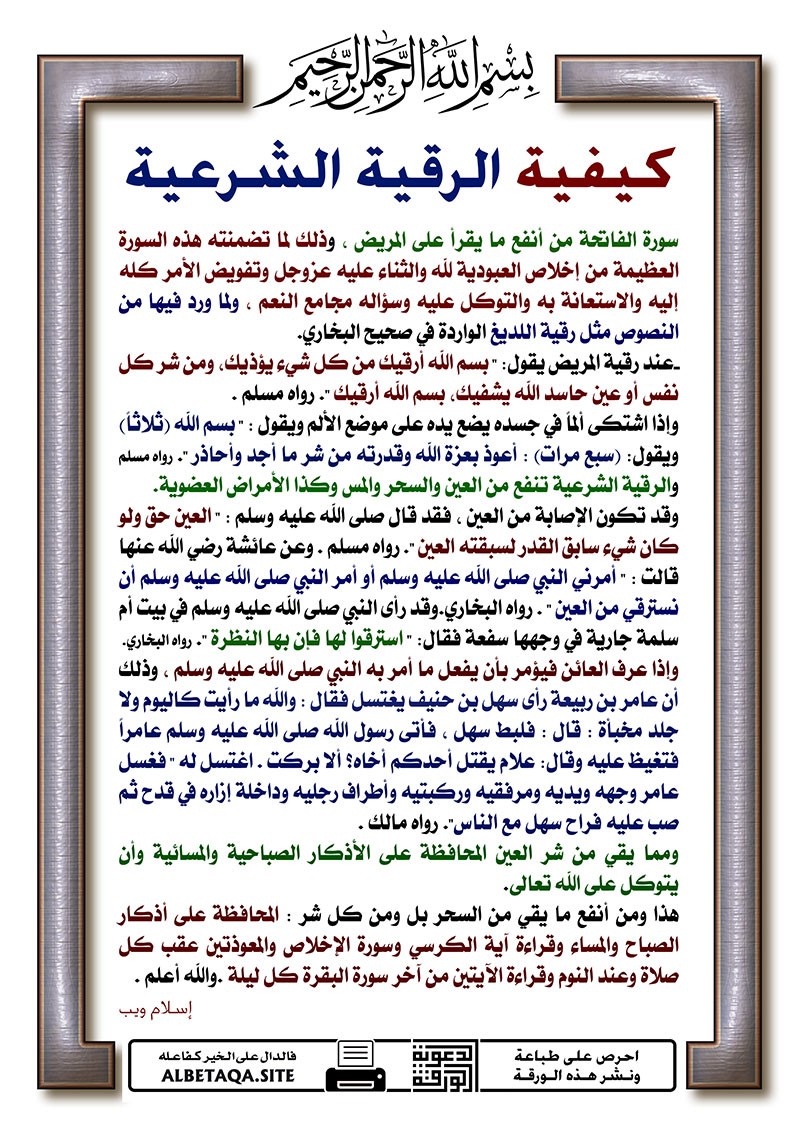 بسم الله الرحمن الرحيم
كيفية الرقية الشرعية
سورة الفاتحة من أنفع ما يقرأ على المريض ، وذلك لما تضمنته هذه السورة
العظيمة من إخلاص العبودية لله والثناء عليه عزوجل وتفويض الأمر كله
إليه والاستعانة به والتوكل عليه وسؤاله مجامع النعم ، ولما ورد فيها من
النصوص مثل رقية اللديغ الواردة في صحيح البخاري.
ـعند رقية المريض يقول: " بسم الله أرقيك من كل شيء يؤذيك، ومن شر كل
نفس أو عين حاسد الله يشفيك، بسم الله أرقيك ". رواه مسلم .
وإذا اشتكى ألماً في جسده يضع يده على موضع الألم ويقول : " بسم الله (ثلاثاً)
ويقول: (سبع مرات) : أعوذ بعزة الله وقدرته من شر ما أجد وأحاذر ". رواه مسلم
والرقية الشرعية تنفع من العين والسحر والمس وكذا الأمراض العضوية.
وقد تكون الإصابة من العين ، فقد قال صلى الله عليه وسلم : " العين حق ولو
كان شيء سابق القدر لسبقته العين ". رواه مسلم . وعن عائشة رضي الله عنها
قالت : " أمرني النبي صلى الله عليه وسلم أو أمر النبي صلى الله عليه وسلم أن
نسترقي من العين " . رواه البخاري.وقد رأى النبي صلى الله عليه وسلم في بيت أم
سلمة جارية في وجهها سفعة فقال: " استرقوا لها فإن بها النظرة ". رواه البخاري.
وإذا عرف العائن فيؤمر بأن يفعل ما أمر به النبي صلى الله عليه وسلم ، وذلك
أن عامر بن ربيعة رأى سهل بن حنيف يغتسل فقال : والله ما رأيت كاليوم ولا
جلد مخبأة : قال : فلبط سهل ، فأتى رسول الله صلى الله عليه وسلم عامراً
فتغيظ عليه وقال: علام يقتل أحدكم أخاه؟ ألا بركت . اغتسل له " فغسل
عامر وجهه ويديه ومرفقيه وركبتيه وأطراف رجليه وداخلة إزاره في قدح ثم
صب عليه فراح سهل مع الناس". رواه مالك .
ومما يقي من شر العين المحافظة على الأذكار الصباحية والمسائية وأن
يتوكل على الله تعالى.
هذا ومن أنفع ما يقي من السحر بل ومن كل شر : المحافظة على أذكار
الصباح والمساء وقراءة آية الكرسي وسورة الإخلاص والمعوذتين عقب كل
صلاة وعند النوم وقراءة الآيتين من آخر سورة البقرة كل ليلة .والله أعلم .
إسلام ويب
احرص على طباعة
ونشر هذه الورقة
الورقة
الدعوية
فالدال على الخير كفاعله
ALBETAQA.SITE